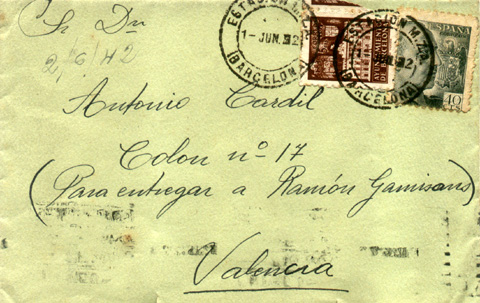 Sr Dn
2/6/42
Antonio Cardil
Colon nº 17
(Para entregar a Ramón Gamisans)
Valencia
BARCELONA
1-JUN.42
AYUNTAMIENTO
DE BARCELONA
BARCELONA
ESPAÑA
40
CTS